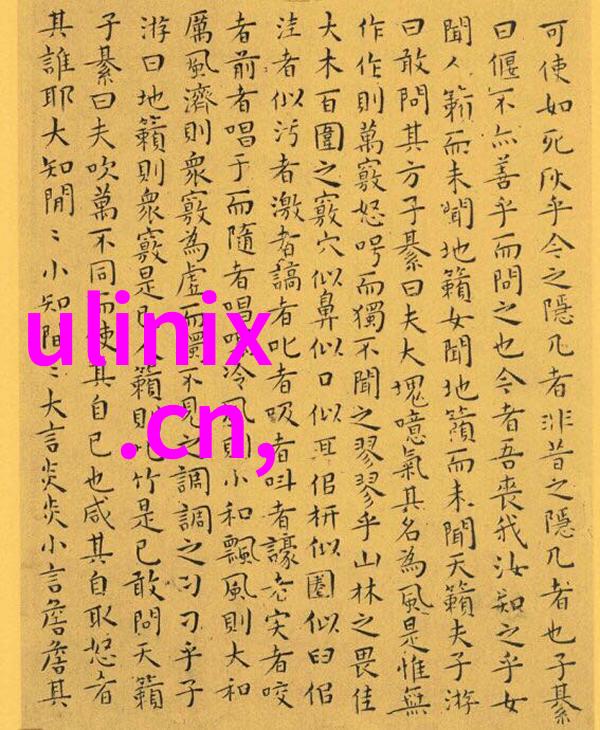 可使如死灰乎今之隱几者非昔之隱几者也子綦
曰偃不亦善乎而問之也今者吾喪我汝知之乎女
聞人籟而未聞地籟女聞地籟而未聞天籟夫子游
曰敢問其方子綦曰夫大塊噫氣其名為風是惟無
作作則萬竅怒呺而獨不聞之翏翏乎山林之畏佳
大木百圍之竅穴似鼻似口似耳似枅似圈似臼似
洼者似污者激者謞者叱者吸者叫者譹者宎者咬
者前者唱于而隨者唱喁泠風則小和飄風則大和
厲風濟則衆竅為虛而獨不見之調調之刁刁乎子
游曰地籟則衆竅是已人籟則比竹是已敢問天籟
子綦曰夫吹萬不同而使其自已也咸其自取怒者
其誰耶大知閒〻小知間〻大言炎炎小言詹詹其
ulinix
.cn,